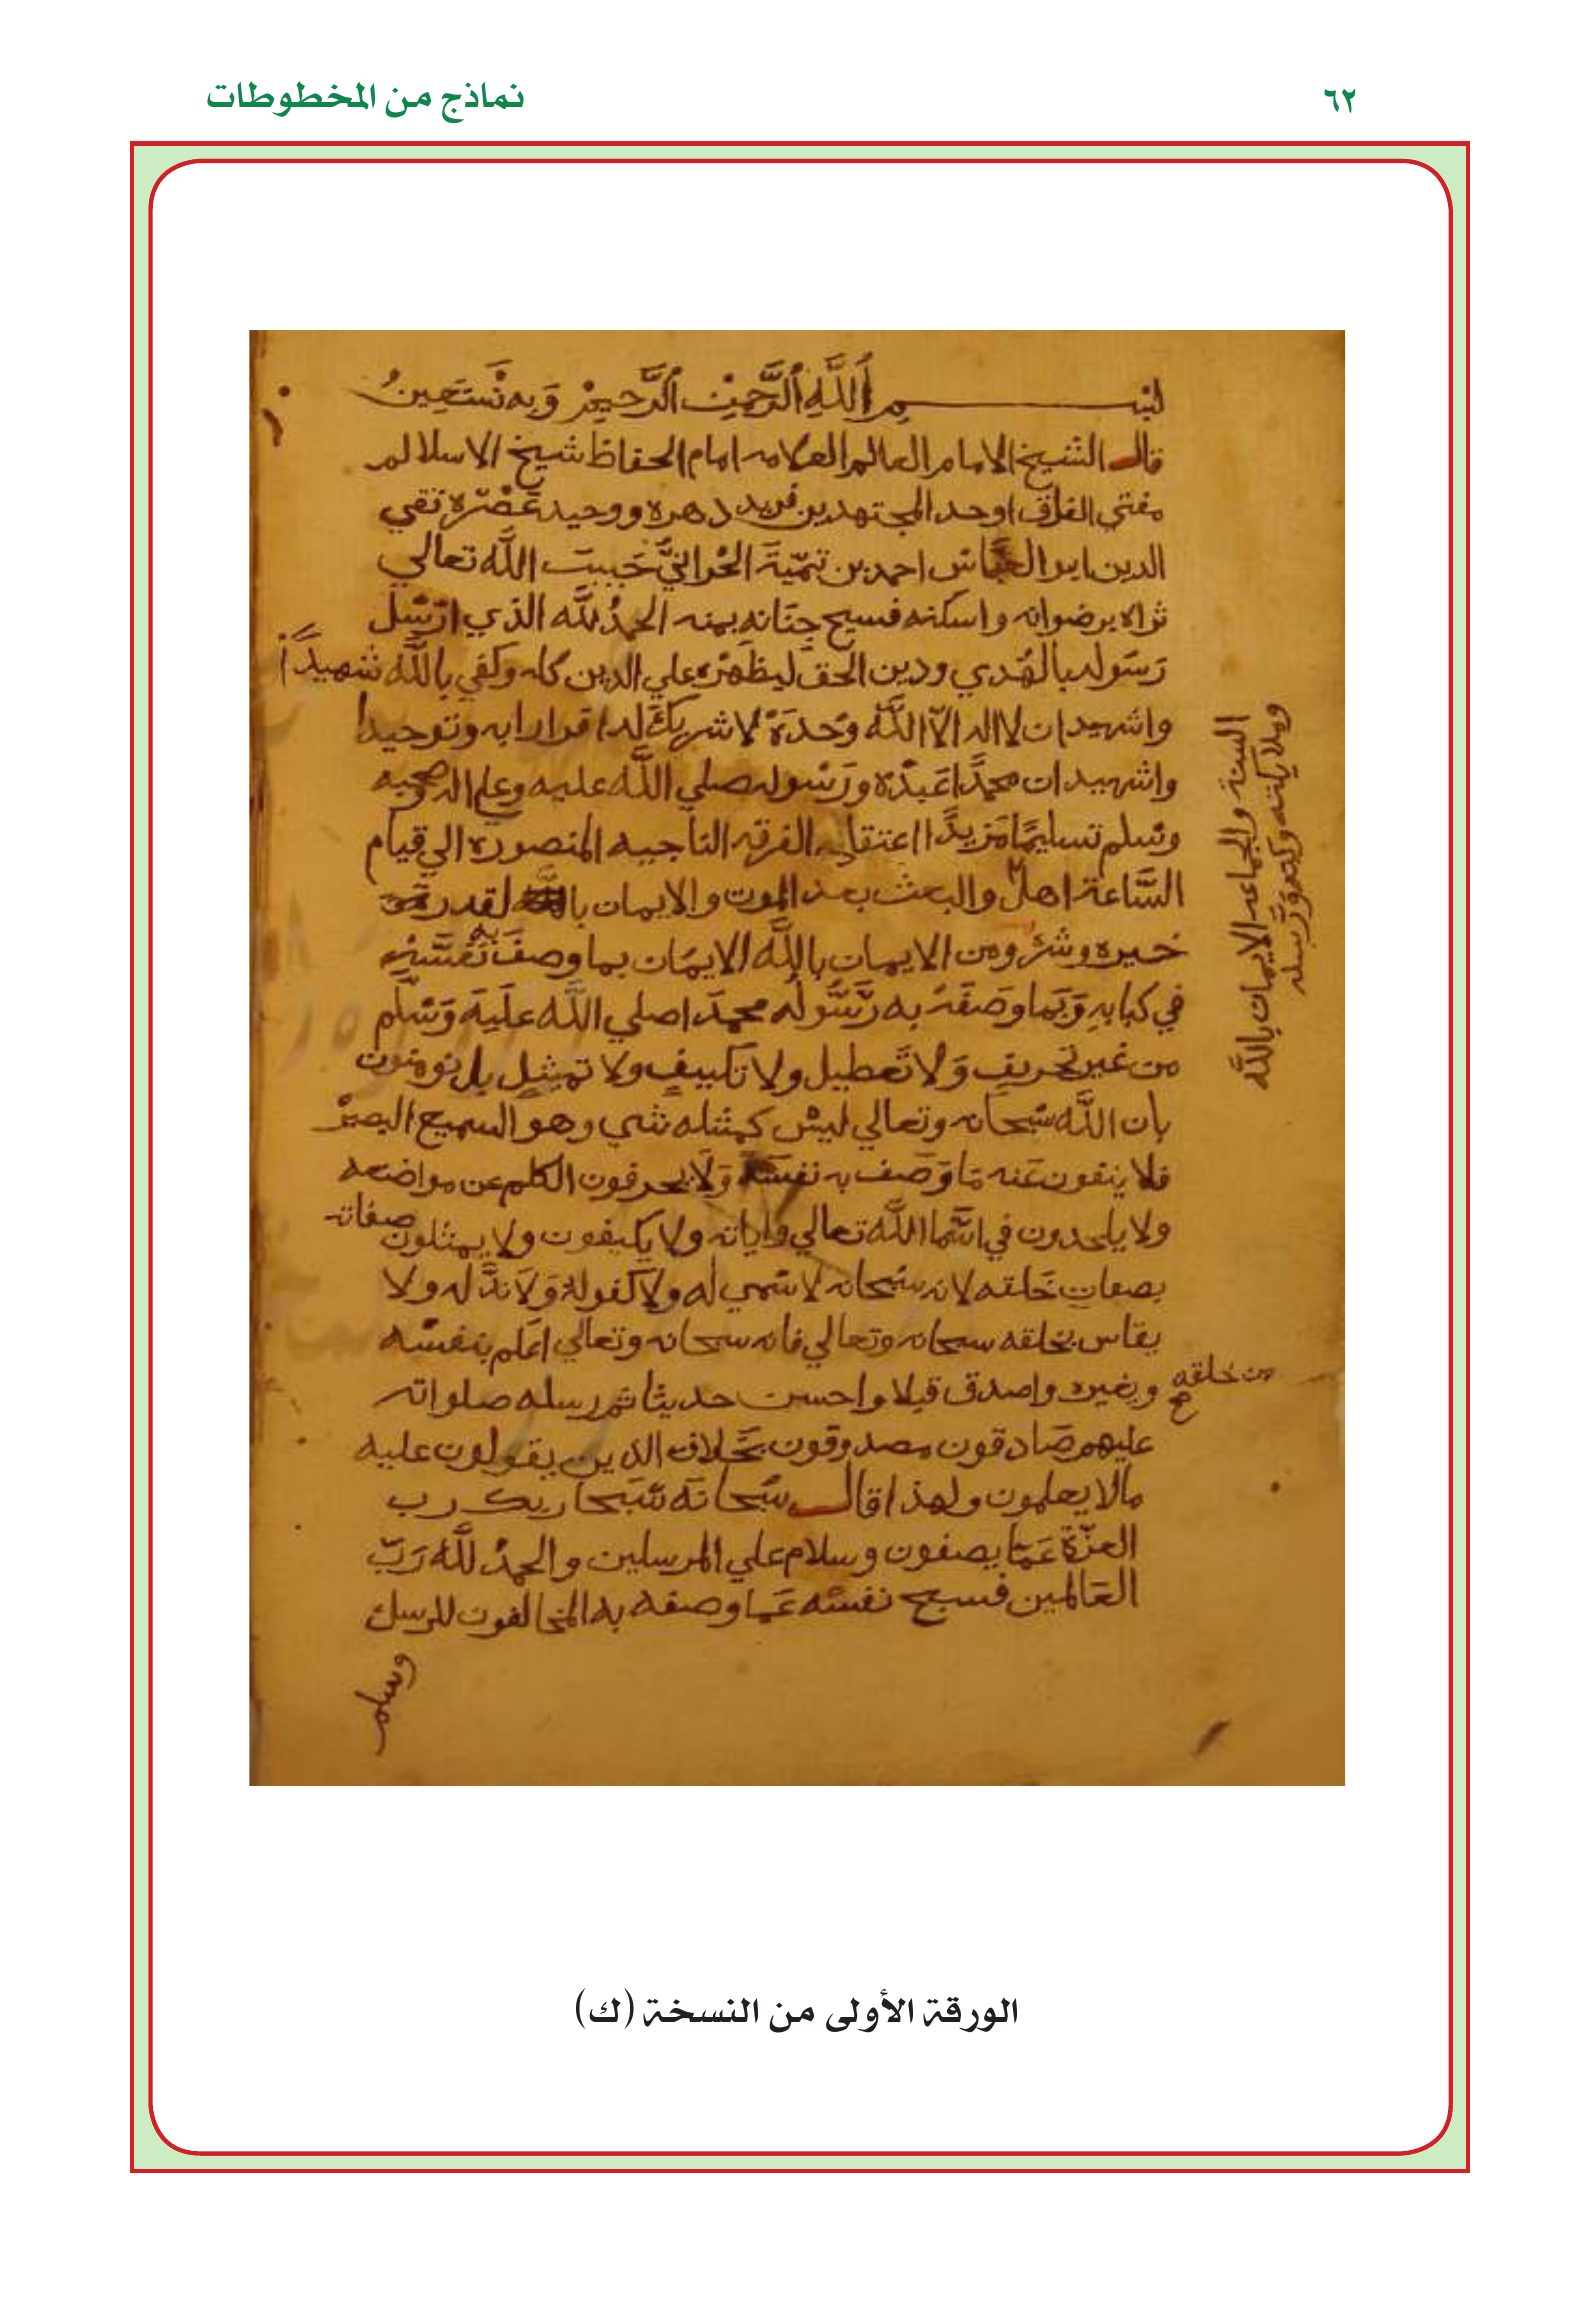 ٦٢
نماذج من المخطوطات
بسم اللَّه الرَّحمن الرَّحيم وَبه نستعينُ
قال الشيخ الامام العالم العلامه امام الحفاظ شيخ الاسلا لم
مفتي الفراق اوحد المجتهدين فريد دهره ووحيد عَصْره تقي
الدين ابو العباس احمد بن تيميّة الحْرانيّ حَببت اللَّه تعالي
ثراه برضوانه واسكنه فسيح جنَانه بمنه الحمدُ للَّه الذي ارْسَل
رَسَوله بالهُدي ودين الحق ليظهَره علي الدين كله وكفي باللَّه شهيدَّا
واشهيد ان لا اله الاّ اللَّه وَحدَهْ لا شريكَ له اقرارا به وتوحيدا
واشهيد ان محمدًا عَبدْه ورَسْوله صلي اللَّه عليه وعلي اله وصحبه
وسْلم تسليمًا مَزيدًا اعتقاد الفرقه الناجيه المنصوره الي قيام
السَّاعة اهل والبعث بعد الموت والايمان بالقدر
خيره وشره ومن الايمان باللَّه الايمَان بما وصفَ به نفسَه
في كتابه وَبَما وصَفَهُ به رَّسَّوله محمدَ اصلي اللَّه علَيَهَ وَسْلّم
من غير تحريفٍ وَلا تَعطيل ولا تكييفٍ ولا تمثيل بل نومنون
بان اللَّه سْبحانه وتعالي ليسْ كمثله شي وهو السميع البصيرْ
فلا ينفون عَنه مَا وَصَف به نفسَه وَلَا يحرفون الكلم عن مواضعه
ولا يلحدون في اسَّما اللَّه تعالي واياته ولا يكيفون ولا يمثلون صفاته
بصفاتِ خَلقه لانه سْبحانه لا سْمي له ولا كفو لهُ وَلَا ندَّ له ولا
يقاس بخلقه سبحانه وتعالي فانه سبحانه وتعالي اعَلم بنفسْه
وبغيره واصدق قيلا واحسن حديثا ثم رسله صلواته
من خلقه
عليهم صَادقون مصدوقون بخَّلاف الذين يقولون عليه
مالا يعلمون ولهذا قال سْبحانَه سْبَحا ربك رب
العزّة عَمّا يصفون وسلام علي المرسلين والحمدُ للَّه رَبّ
العَالمين فسبح نفسْه عَما وصفه به المخالفون للرسل
وسلم
السنة والجماعه الايمان باللَّه
وملايكته وكتبه ورَسله
الورقة الأولى من النسخة (ك)